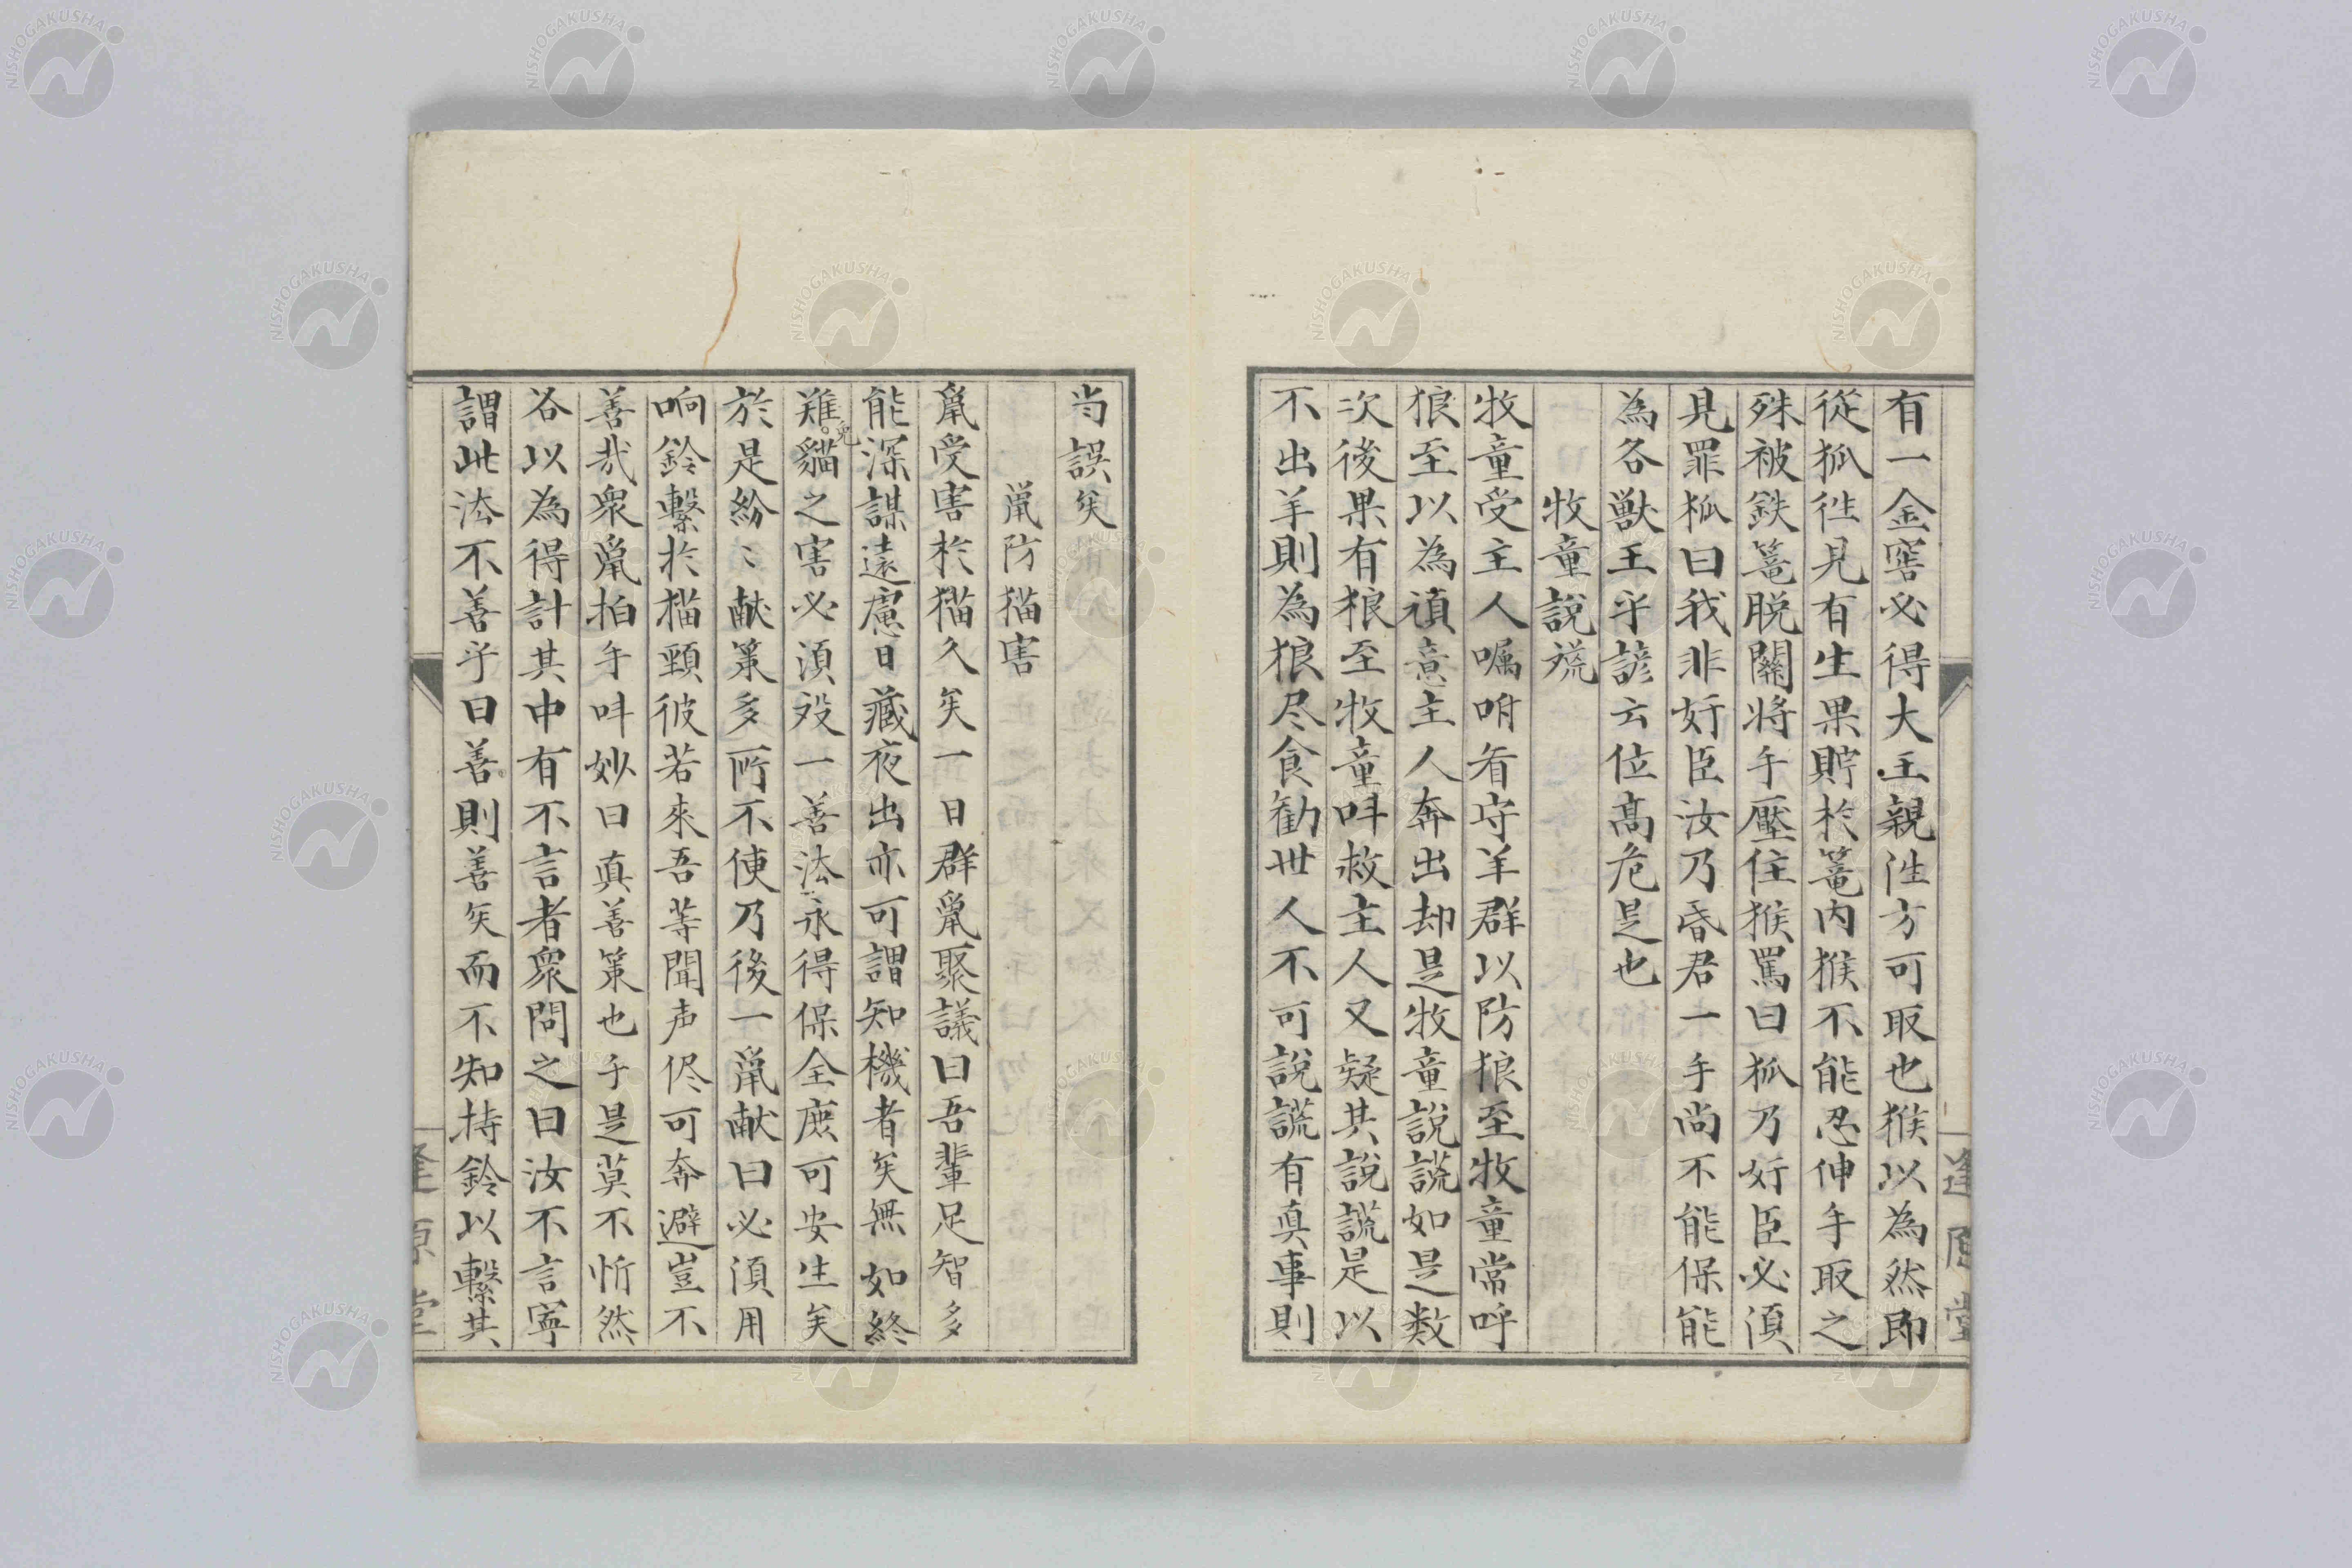 有一金窖必得大王親往方可取也猴以為然即
從狐徃見有生果貯於篭内猴不能忍伸手取之
殊被鉄篭脱關將手壓住猴罵曰狐乃奸臣必須
見罪狐曰我非奸臣汝乃昏君一手尚不能保能
為各獣王乎諺云位髙危是也
牧童說謊
牧童受主人嘱咐看守羊群以防狼至牧童常呼
狼至以為頑意主人奔出却是牧童說謊如是数
次後果有狼至牧童呌救主人又疑其說謊是以
不出羊則為狼尽食勸世人不可說謊有真事則
当誤矣
鼠防猫害
鼠受害於猫久矣一日群鼠聚議曰吾輩足智多
能深謀遠慮日藏夜出亦可謂知機者矣無如終
難免貓之害必須設一善法永得保全庶可安生矣
於是紛〻献策多所不便乃後一鼠献曰必須用
响鈴繫於猫頸彼若來吾等聞声侭可奔避豈不
善哉衆鼠拍手呌妙曰真善策也于是莫不忻然
各以為得計其中有不言者衆問之曰汝不言寧
謂此法不善乎曰善則善矣而不知持鈴以繫其
逢原堂
逢原堂
NISHOGAKUSHA